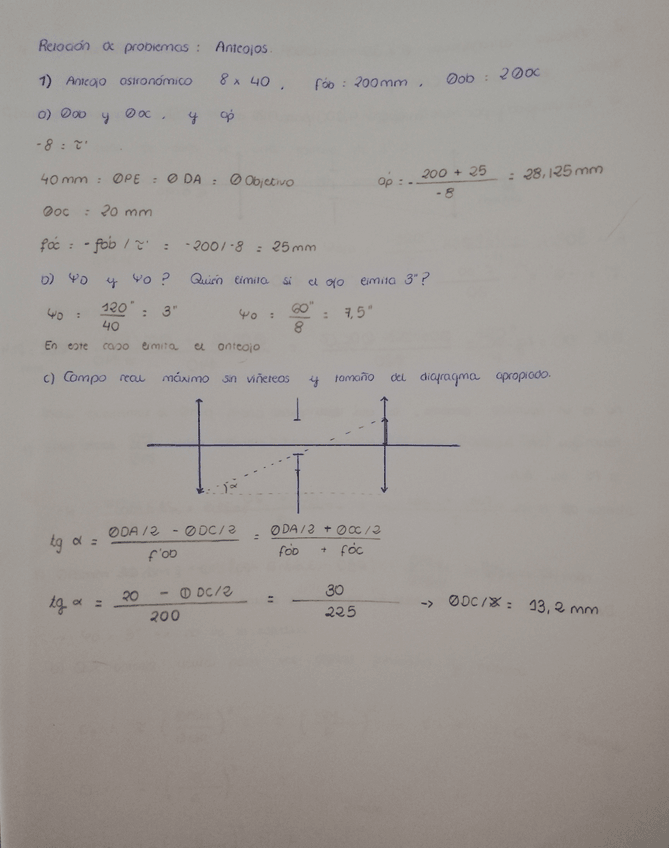 Relación de problemas : Anteojos.
1) Anteojo astronómico 8 x 40 , fób : 200 mm . Øob : 2Øoc
a) Øob y Øoc . y óp
-8 = τ'
40 mm = ØPE = Ø DA = Ø Objetivo óp = - 200 + 25 / -8 = 28,125 mm
Øoc = 20 mm
fóc = - fób / τ' = -200/-8 = 25 mm
b) Ψo y Ψo ? Quién limita si el ojo limita 3"?
Ψo = 120" / 40 = 3" Ψo = 60" / 8 = 7,5"
En este caso limita el anteojo
c) Campo real máximo sin viñeteos y tamaño del diafragma apropiado.
α
tg α = ØDA/2 - ØDC/2 / f'ob = ØDA/2 + ØOC/2 / fób + fóc
tg α = 20 - ØDC/2 / 200 = 30 / 225 → ØDC/2 = 13,2 mm